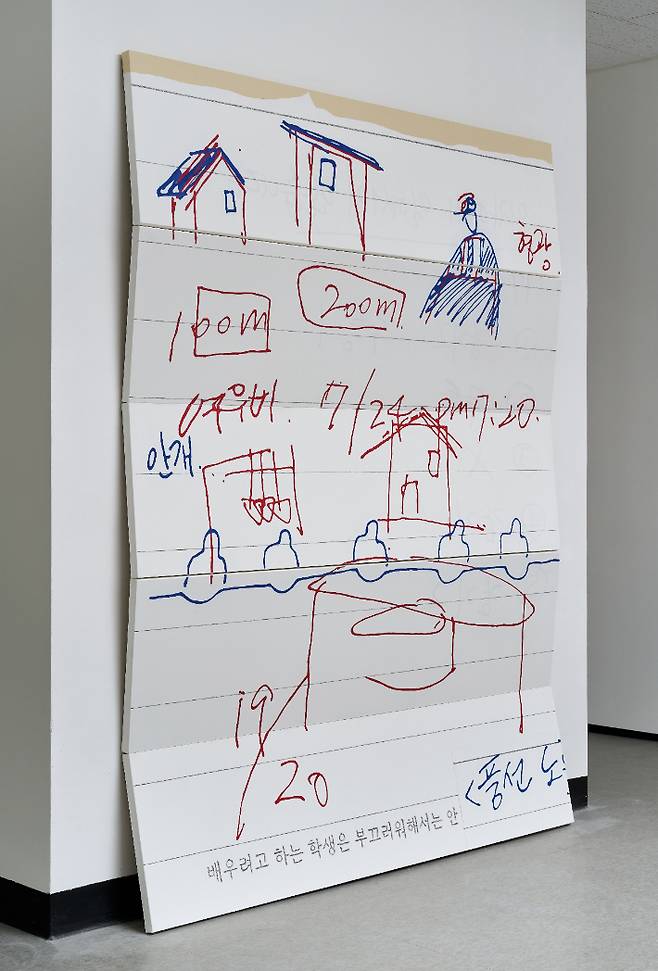 형광.
100m 200m
여우비. 7/24 pm 7:20.
안개.
19/20
<풍선 노
배우려고 하는 학생은 부끄러워해서는 안